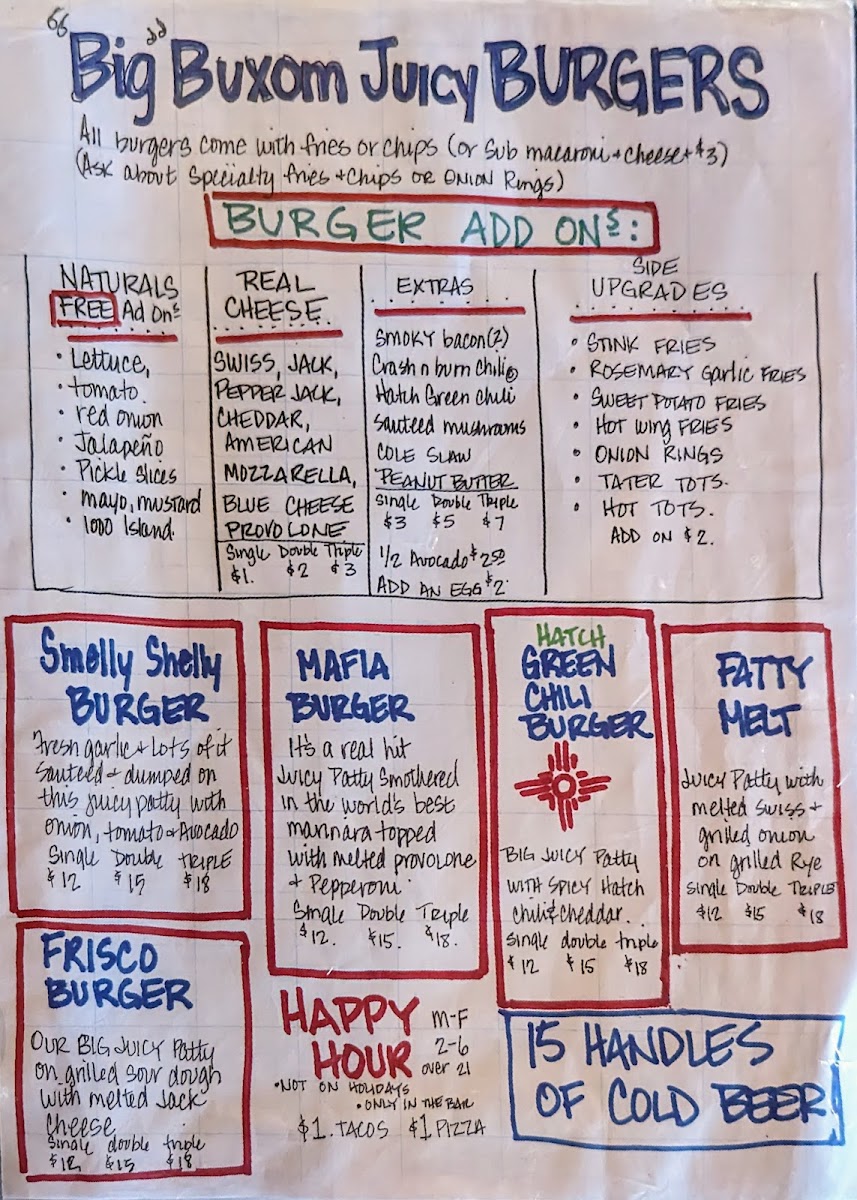 "Big" Buxom Juicy BURGERS
All burgers come with fries or chips (or sub macaroni + cheese + $3)
(Ask about specialty fries + chips or ONION Rings)
BURGER ADD ONS:
NATURALS
FREE Ad Ons
• Lettuce,
• tomato.
• red onion
• Jalapeño
• Pickle slices
• mayo, mustard
• 1000 Island.
REAL
CHEESE
SWISS, JACK,
PEPPER JACK,
CHEDDAR,
AMERICAN
MOZZARELLA,
BLUE CHEESE
PROVOLONE
Single Double Triple
$1. $2 $3
EXTRAS
SMOKY bacon (2)
Crash n burn chili
Hatch Green chili
Sauteed mushrooms
COLE SLAW
PEANUT BUTTER
Single Double Triple
$3 $5 $7
1/2 Avocado $2.50
ADD AN EGG $2.
SIDE
UPGRADES
• STINK FRIES
• ROSEMARY Garlic FRIES
• SWEET POTATO FRIES
• HOT Wing FRIES
• ONION RINGS
• TATER TOTS.
• HOT TOTS.
ADD ON $2.
Smelly Shelly
BURGER
Fresh garlic + lots of it
Sauteed + dumped on
this juicy patty with
onion, tomato + Avocado
Single Double TRIPLE
$12 $15 $18
MAFIA
BURGER
It's a real hit
Juicy Patty Smothered
in the world's best
marinara topped
with melted provolone
+ Pepperoni.
Single Double Triple
$12. $15. $18.
HATCH
GREEN
CHILI
BURGER
BIG JUICY Patty
WITH SPICY Hatch
Chili & Cheddar.
Single double triple
$12 $15 $18
FATTY
MELT
JUICY Patty with
melted Swiss +
grilled onion
on grilled Rye
Single Double TRIPLE
$12 $15 $18
FRISCO
BURGER
OUR BIG JUICY Patty
on grilled sour dough
with melted Jack
Cheese
Single double triple
$12 $15 $18
HAPPY
HOUR
M-F
2-6
over 21
•NOT ON HOLIDAYS
•ONLY IN THE BAR
$1. TACOS $1 PIZZA
15 HANDLES
OF COLD BEER